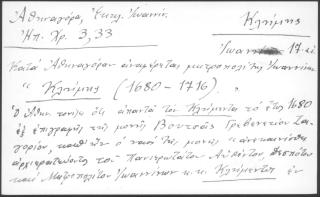 Ἀθηναγόρα, Ἐκκλ. Ἰωανν. Κλήμης
Ἠπ. Χρ. 3,33 Ἰωαννιν 17 αἰ.
Κατὰ Ἀθηναγόραν ἀναφέρεται μητροπολίτης Ἰωαννίνων
"Κλήμης (1680 - 1716)"
Ὁ Ἀθην. τονίζει ὅτι ἀπαντᾶ τὸν Κλήμεντα τὸ ἔτος 1680
ἐξ ἐπιγραφῆς τῆς μονῆς Βουτσᾶς Γρεβενιτίου Ζα-
γορίου, καθ' ἣν ὁ ναὸς τῆς μονῆς "ἀνεκαινίσθη
ἀρχιερατεύοντος τοῦ Πανιερωτάτου Αὐθέντου, Δεσπότου
καὶ Μητροπολίτου Ἰωαννίνων κ.κ. Κλήμεντος ἐν